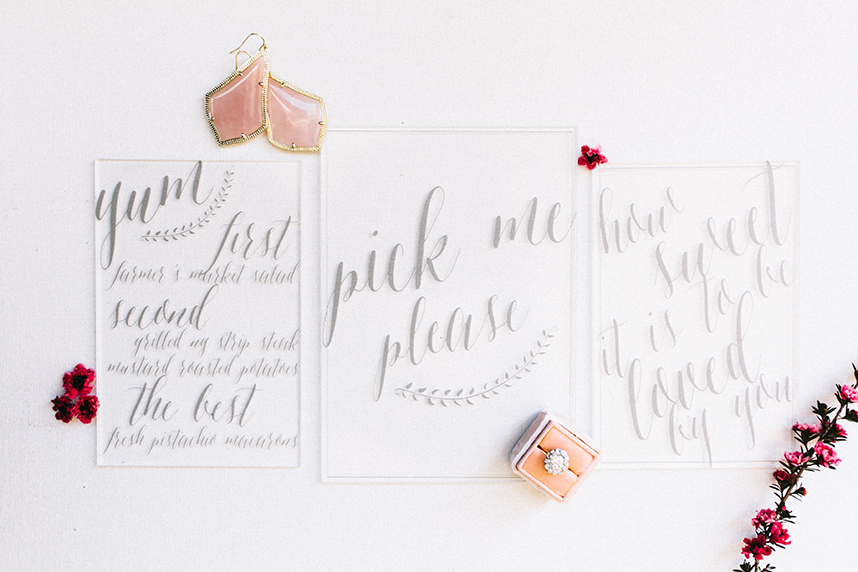 yum
first
farmer's market salad
second
grilled ny strip steak
mustard roasted potatoes
the best
fresh pistachio macarons
pick me
please
how
sweet
it is to be
loved
by you